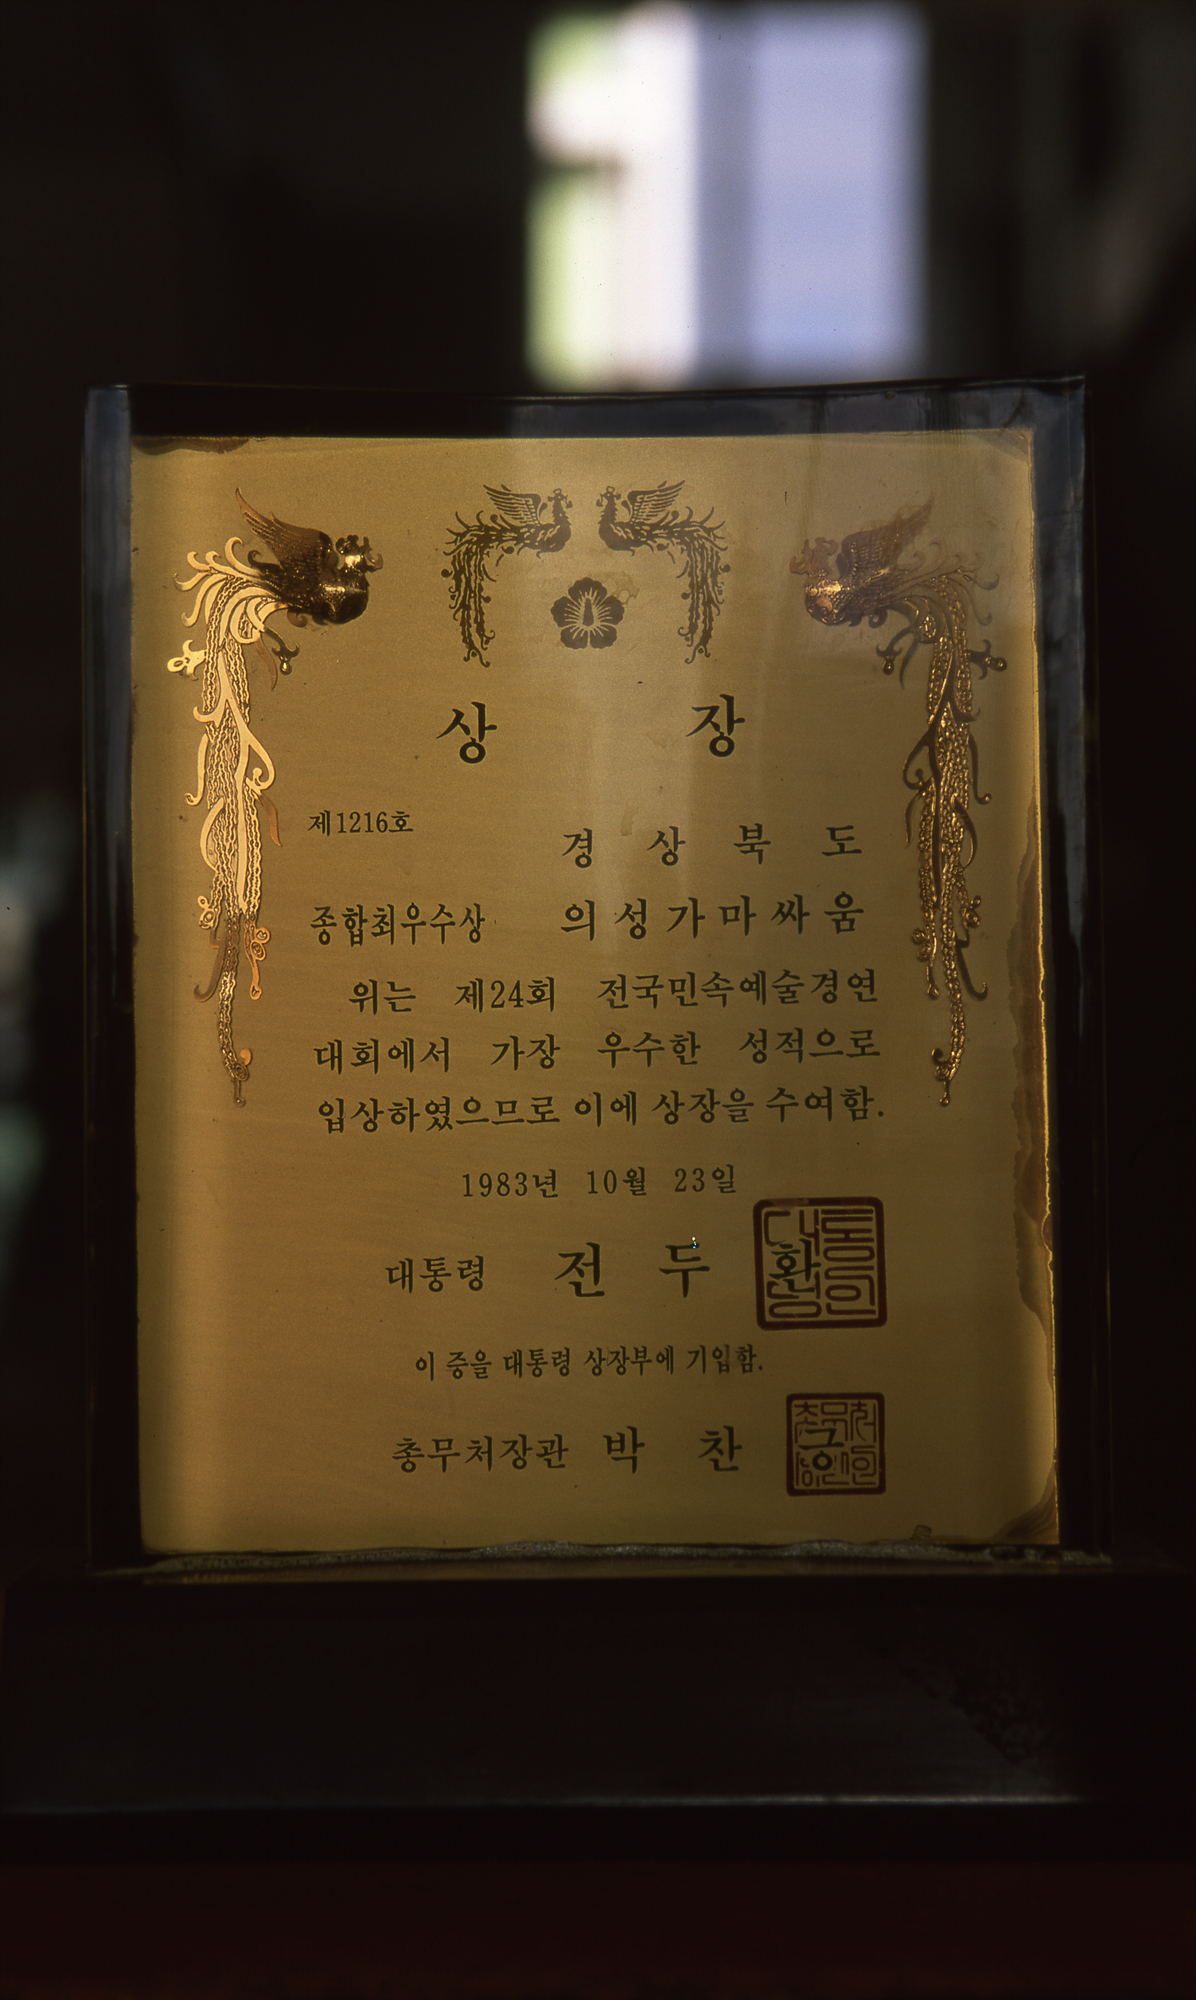 상 장
제1216호
경 상 북 도
종합최우수상 의성가마싸움
위는 제24회 전국민속예술경연
대회에서 가장 우수한 성적으로
입상하였으므로 이에 상장을 수여함.
1983년 10월 23일
대통령 전 두 환
대통령인
이 증을 대통령 상장부에 기입함.
총무처장관 박 찬 긍